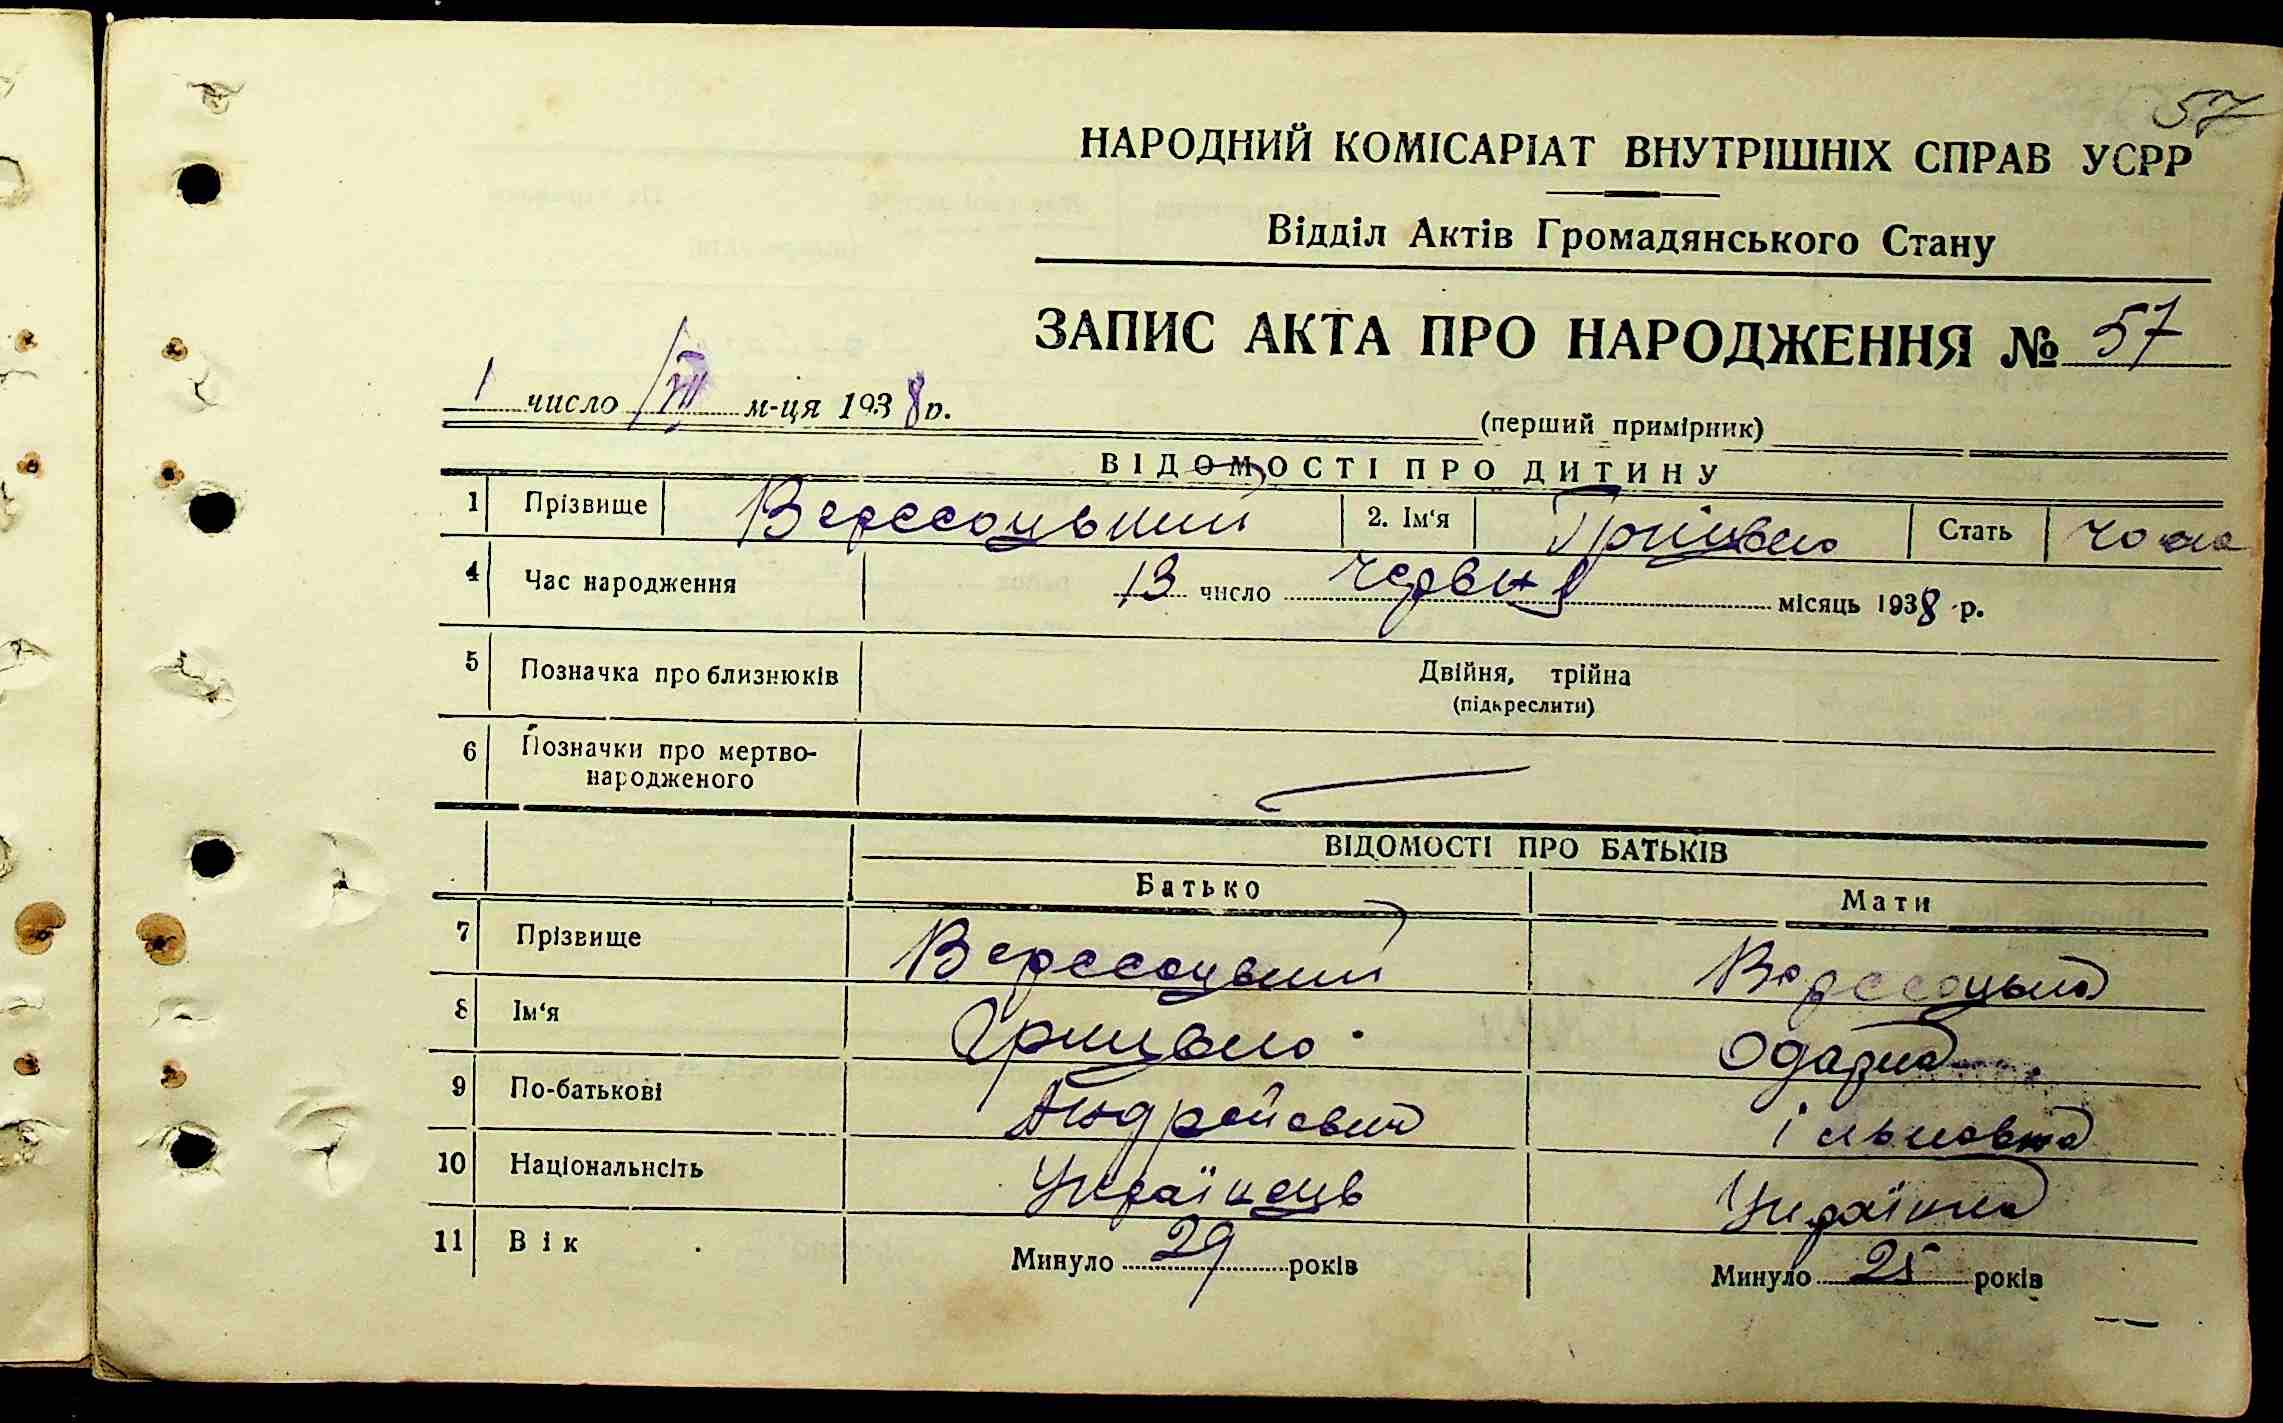 57
НАРОДНИЙ КОМІСАРІАТ ВНУТРІШНІХ СПРАВ УСРР
Відділ Актів Громадянського Стану
ЗАПИС АКТА ПРО НАРОДЖЕННЯ № 57
1 число VII м-ця 1938 р.
(перший примірник)
ВІДОМОСТІ ПРО ДИТИНУ
1 Прізвище 2. Ім'я Грицько Стать чол
4 Час народження 13 число червня місяць 1938 р.
5 Позначка про близнюків Двійня, трійна
(підкреслити)
6 Позначки про мертво-
народженого
ВІДОМОСТІ ПРО БАТЬКІВ
Батько Мати
7 Прізвище
8 Ім'я Грицько Одарка
9 По-батькові Андрійович Ільковна
10 Національнсіть Українець Українка
11 Вік Минуло 29 років Минуло 25 років